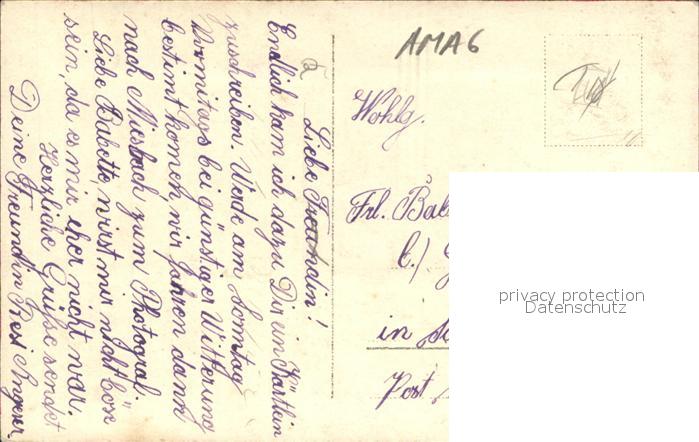 Liebe Freundin!
Endlich kam ich dazu Dir ein Kärtlein
zuschreiben. Werde am Sonntag
Vormitags bei günstiger Witterung
bestimt komen, wir fahren dann
nach Miesbach zum Photograf.
Liebe Babette, wirst mir nicht böse
sein, da es mir eher nicht war.
Herzliche Grüße sendet
Deine Freundin Resi
AMA6
Wohlg.
Frl. Bab
b./
in
Post
privacy protection
Datenschutz